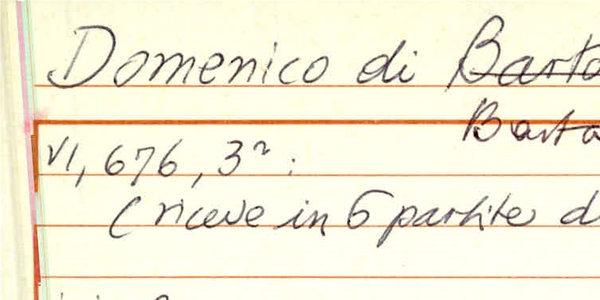 Domenico di Barto
Barto
VI, 676, 3ª:
(riceve in 6 partite d